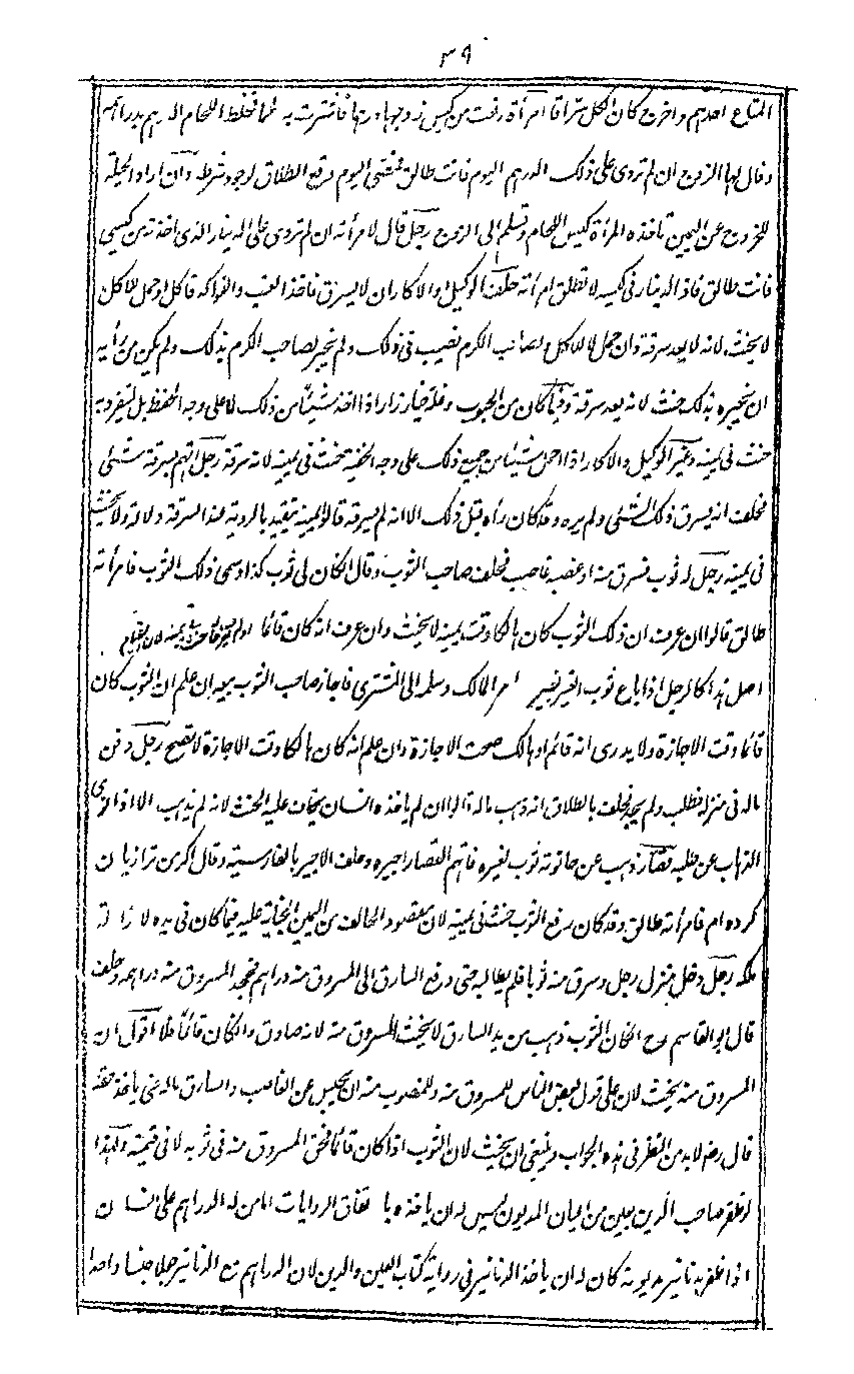 ٣٩
المتاع احدهم واخرج كان الكل سراقا امرأة رفعت من كيس زوجها درهما فاشترت به لحما فخلط اللحام الدرهم بدراهمه
وقال لها الزوج ان لم تردى على ذلك الدرهم اليوم فانت طالق فمضى اليوم وقع الطلاق لوجود شرطه وان اراد الحيلة
للخروج عن اليمين تأخذ المرأة كيس اللحام وتسلم الى الزوج رجل قال لامرأته ان لم تردى على الدينار الذى اخذته من كيسى
فانت طالق فاذا الدينار فى كيسه لا تطلق امرأته حلف الوكيل والاكار ان لا يسرق فاخذ العنب والفواكه فاكل او حمل للاكل
لا يحنث لانه لا يعد سرقة وان حمل لا للاكل ولصاحب الكرم نصيب فى ذلك ولم يخبر لصاحب الكرم بذلك ولم يكن من رأيه
ان يخبره بذلك حنث لانه يعد سرقة وفيما كان من الحبوب وغلة خيار زار اذا اخذ شيئا من ذلك لا على وجه الحفظ بل لتفرد به
حنث فى يمينه وغير الوكيل والاكار اذا حمل شيئا من جميع ذلك على وجه الخفية حنث فى يمينه لانه سرقة رجل اتهم بسرقة شئى
فحلف انه يسرق ذلك الشئى ولم يره وقد كان رآه قبل ذلك الا انه لم يسرقه قالوا يمينه تتقيد بالرؤية عند السرقة دلالة ولا يحنث
فى يمينه رجل له ثوب فسرق منه او غصبه غاصب فحلف صاحب الثوب وقال اكخان لى ثوب كذا وسمى ذلك الثوب فامرأته
طالق قالوا ان عرف ان ذلك الثوب كان هالكا وقت يمينه لا يحنث وان عرف انه كان قائما او لم يعرف حنث فى يمينه لان القيام
اصل هذا كالرجل اذا باع ثوب الغير بغير امر المالك وسلمه الى المشترى فاجاز صاحب الثوب بيعه ان علم ان الثوب كان
قائما وقت الاجازة ولا يدرى انه قائم او هالك صحت الاجازة وان علم انه كان هالكا وقت الاجازة لا تصح رجل دفن
ماله فى منزله فطلب ولم يجد فحلف بالطلاق انه ذهب ماله قالوا ان لم يأخذه انسان يخاف عليه الحنث لانه لم يذهب الا اذا نوى
الذهاب عن طلبه قصار ذهب عن حانوته ثوب لغيره فاتهم القصار اجيره وحلف الاجير بالفارسية وقال اكر من ترا زيان
كرده ام فامرأته طالق وقد كان رفع الثوب حنث فى يمينه لان مقصود الحالف من اليمين الخيانة عليه فيما كان فى يده لا زالة
ملكه رجل دخل منزل رجل وسرق منه ثوبا فلم يطالبه حتى دفع السارق الى المسروق منه دراهم فجحد المسروق منه دراهمه وحلف
قال ابو القاسم رح اكخان الثوب ذهب من يد السارق لا يحنث المسروق منه لانه صادق واكخان قائما فلا اقول ان
المسروق منه يحنث لان على قول بعض الناس للمسروق منه وللمغصوب منه ان يحبس عن الغاصب والسارق ماله حتى يأخذ حقه
قال رض لا بد من النظر فى هذه الجواب وينبغى ان يحنث لان الثوب اذا كان قائما فحق المسروق منه فى ثوبه لا فى قيمته ولهذا
لو ظفر صاحب الدين بعين من اعيان المديون ليس له ان يأخذه باتفاق الروايات اما من له الدراهم على انسان
اذا ظفر بدنانير مديونه كان له ان يأخذ الدنانير فى رواية كتاب العين والدين لان الدراهم مع الدنانير جعلا جنسا واحدا